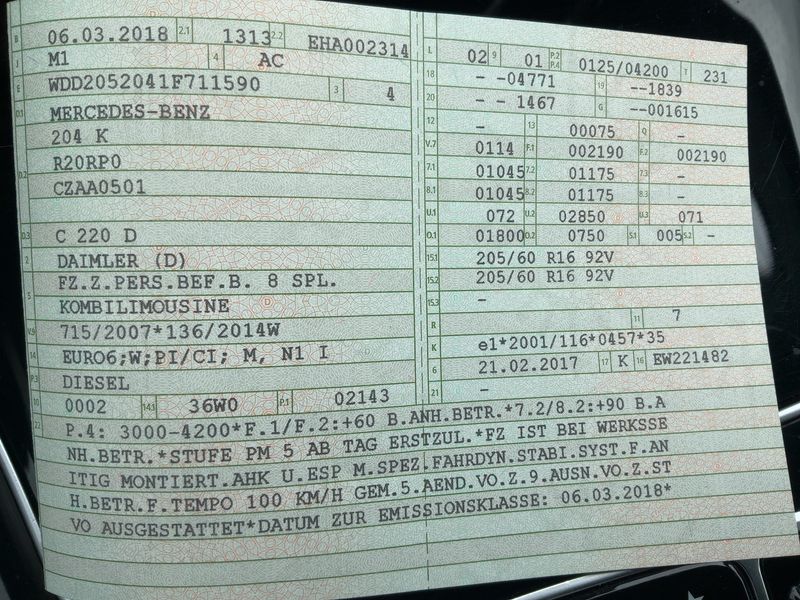 B 06.03.2018 2.1 1313 2.2 EHA002314
J M1 4 AC
E WDD2052041F711590 3 4
D.1 MERCEDES-BENZ
204 K
D.2 R20RP0
CZAA0501
D.3 C 220 D
2 DAIMLER (D)
5 FZ.Z.PERS.BEF.B. 8 SPL.
KOMBILIMOUSINE
V.9 715/2007*136/2014W
14 EURO6;W;PI/CI; M, N1 I
P.3 DIESEL
10 0002 14.1 36W0 P.1 02143
L 02 9 01 P.2 P.4 0125/04200 T 231
18 - -04771 19 --1839
20 - - 1467 G --001615
12 - 13 00075 Q -
V.7 0114 F.1 002190 F.2 002190
7.1 01045 7.2 01175 7.3 -
8.1 01045 8.2 01175 8.3 -
U.1 072 U.2 02850 U.3 071
O.1 01800 O.2 0750 S.1 005 S.2 -
15.1 205/60 R16 92V
15.2 205/60 R16 92V
15.3 -
R 11 7
K e1*2001/116*0457*35
6 21.02.2017 17 K 16 EW221482
21 -
22 P.4: 3000-4200*F.1/F.2:+60 B.ANH.BETR.*7.2/8.2:+90 B.A
NH.BETR.*STUFE PM 5 AB TAG ERSTZUL.*FZ IST BEI WERKSSE
ITIG MONTIERT.AHK U.ESP M.SPEZ.FAHRDYN.STABI.SYST.F.AN
H.BETR.F.TEMPO 100 KM/H GEM.5.AEND.VO.Z.9.AUSN.VO.Z.ST
VO AUSGESTATTET*DATUM ZUR EMISSIONSKLASSE: 06.03.2018*